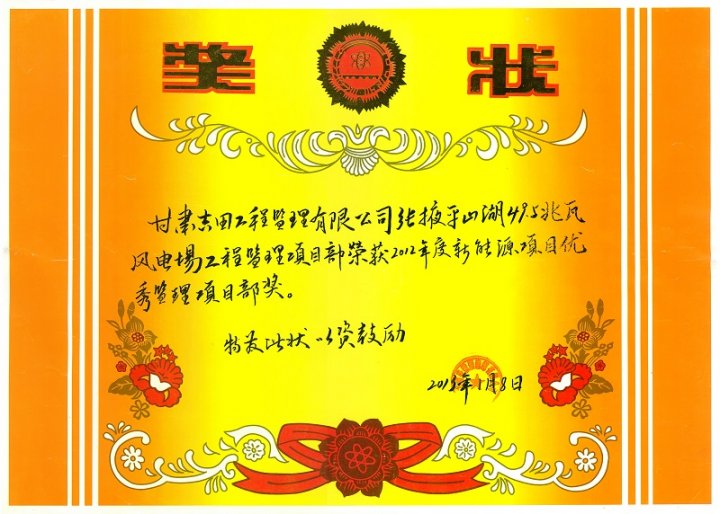 奖 状
甘肃吉田工程监理有限公司张掖平山湖49.5兆瓦
风电場工程监理项目部荣获2012年度新能源项目优
秀监理项目部奖。
特发此状 以资鼓励
2013年1月8日